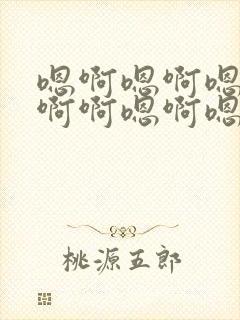 嗯啊嗯啊嗯
啊啊嗯啊嗯
桃源五郎